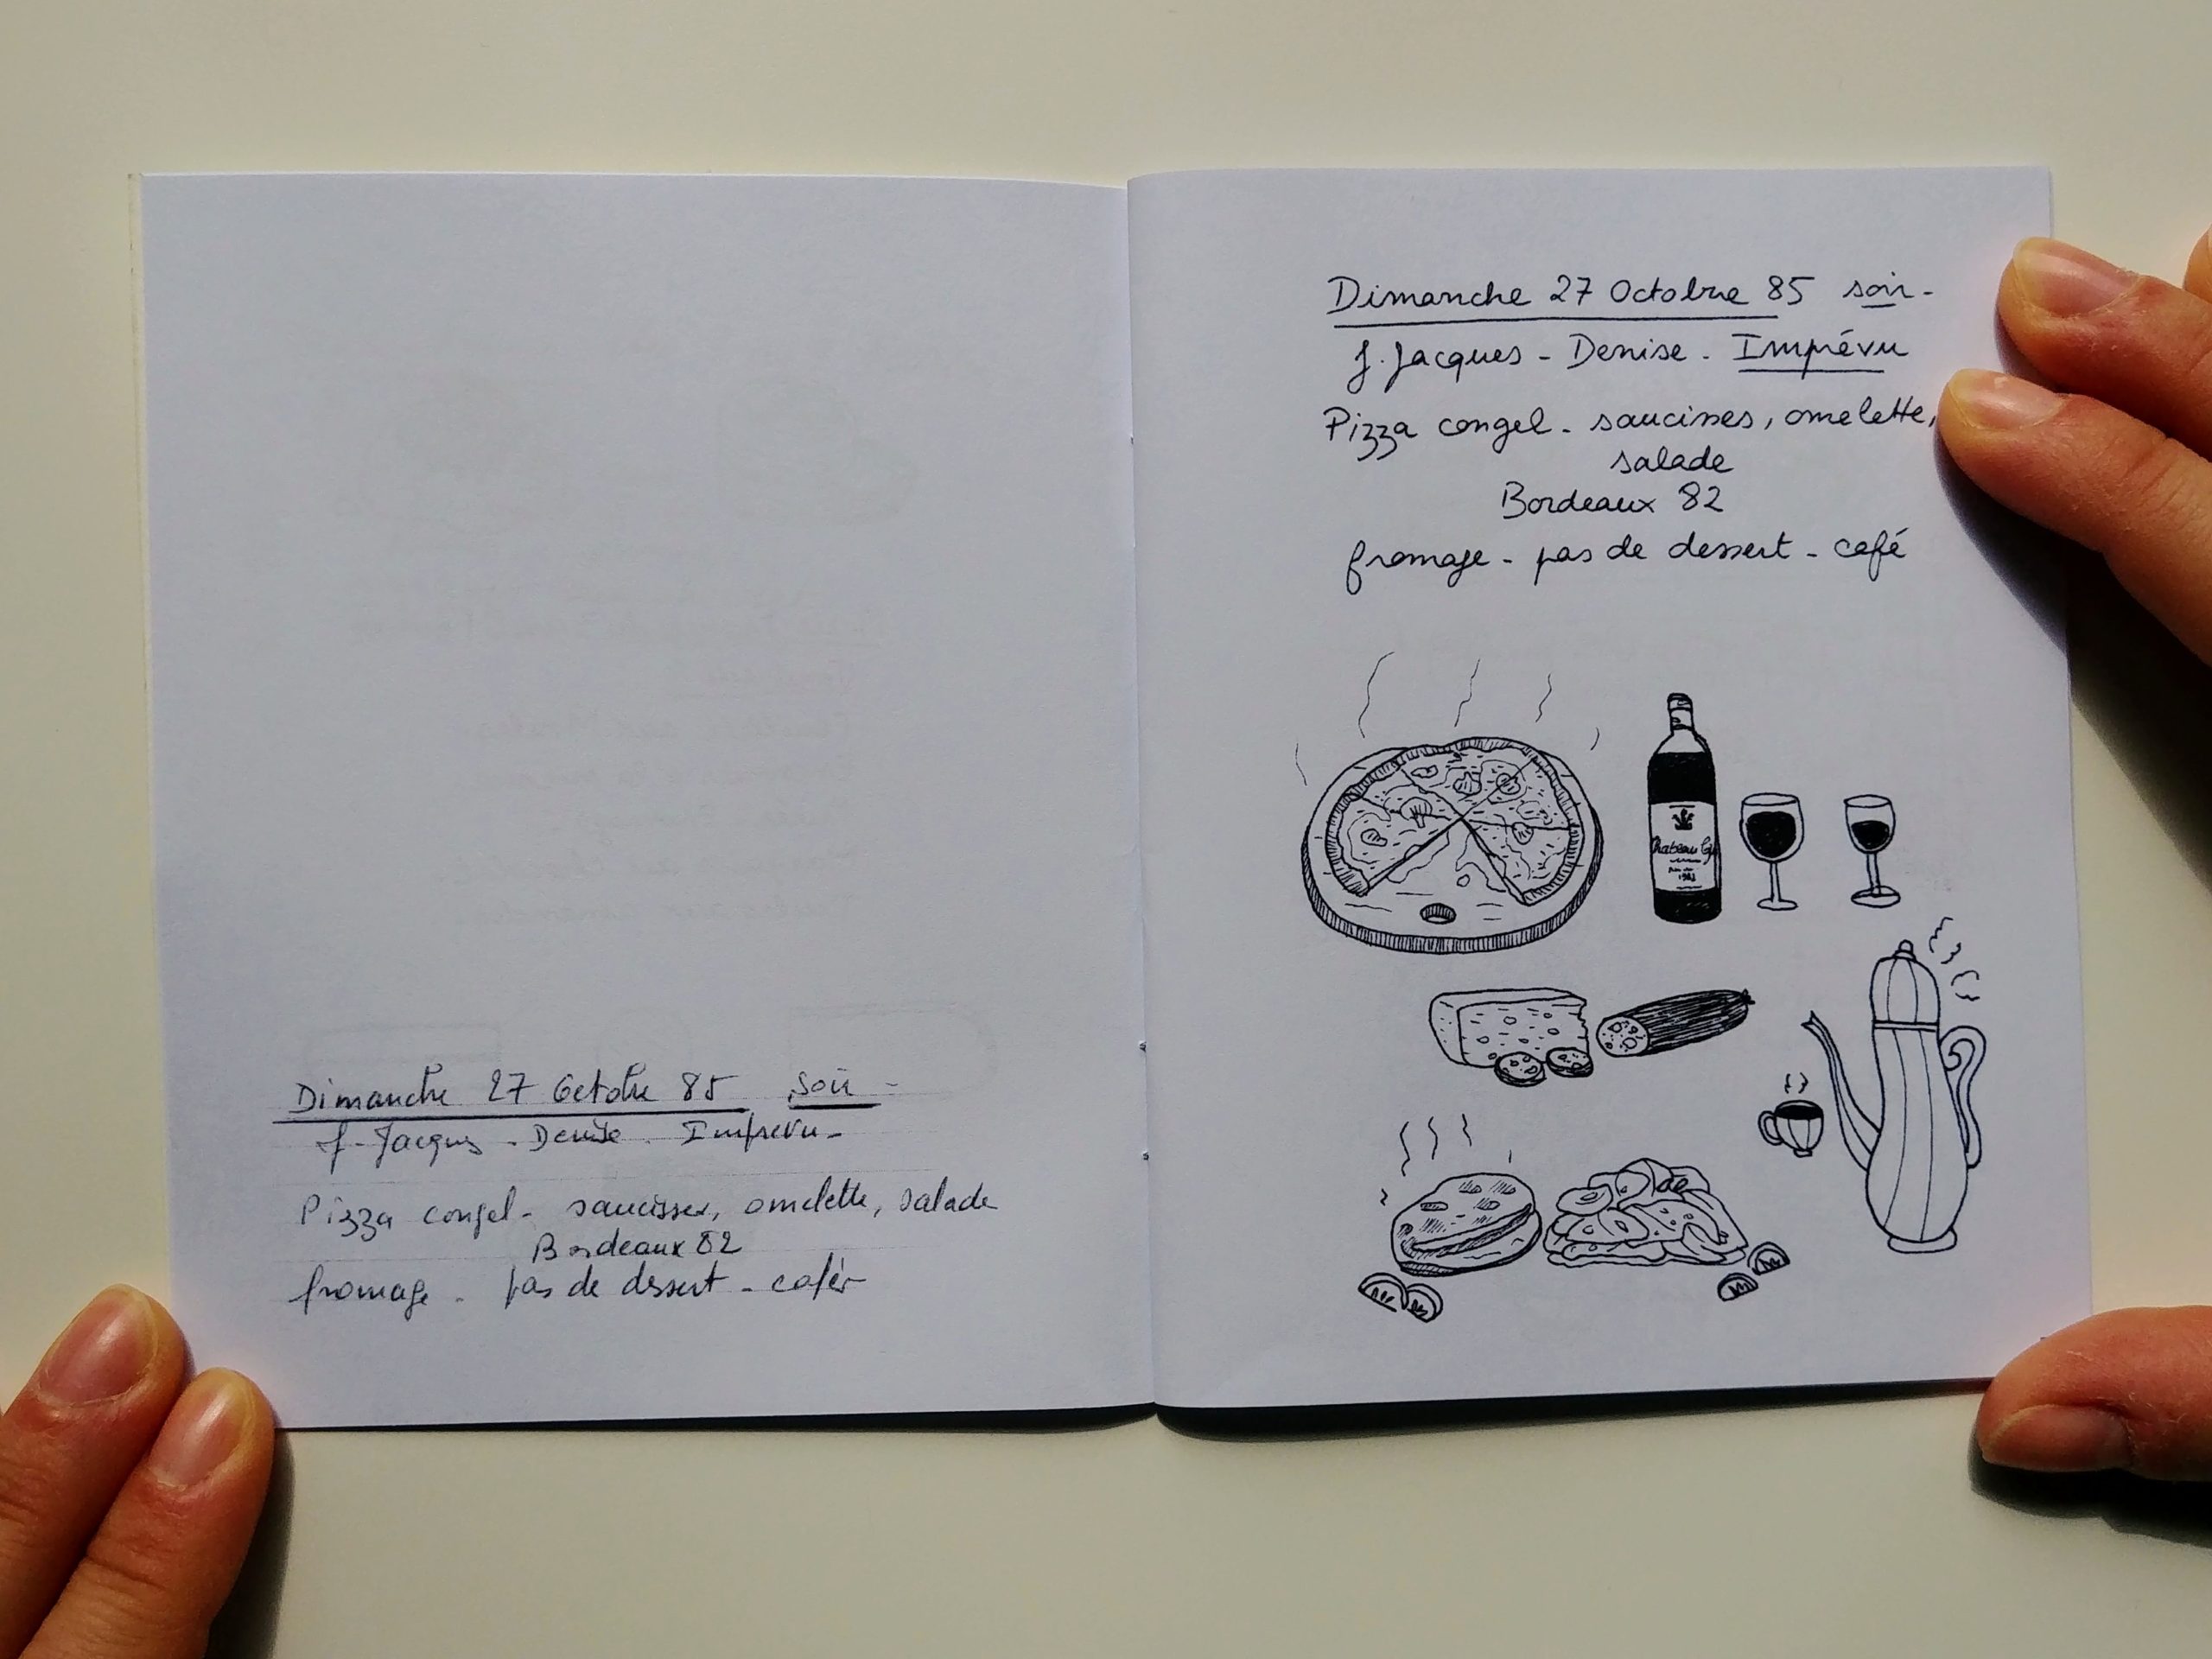 Dimanche 27 Octobre 85 soir -
J-Jacques - Denise - Imprévu -
Pizza congel - saucisses, omelette, salade
Bordeaux 82
fromage - pas de dessert - café
Dimanche 27 Octobre 85 soir -
J. Jacques - Denise - Imprévu
Pizza congel - saucisses, omelette,
salade
Bordeaux 82
fromage - pas de dessert - café
Chateau